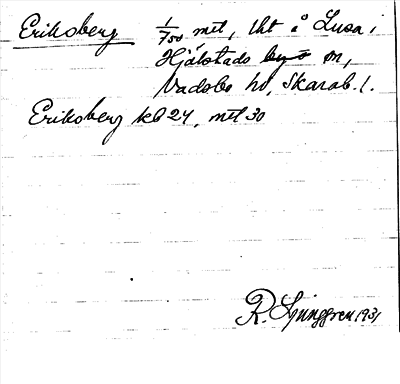 Eriksberg 1/700 mtl, lht å Lusa i
Hjälstads by sn,
Vadsbo hd, Skarab. l.
Eriksberg kb 24, mtl 30
R. Ljunggren 1931